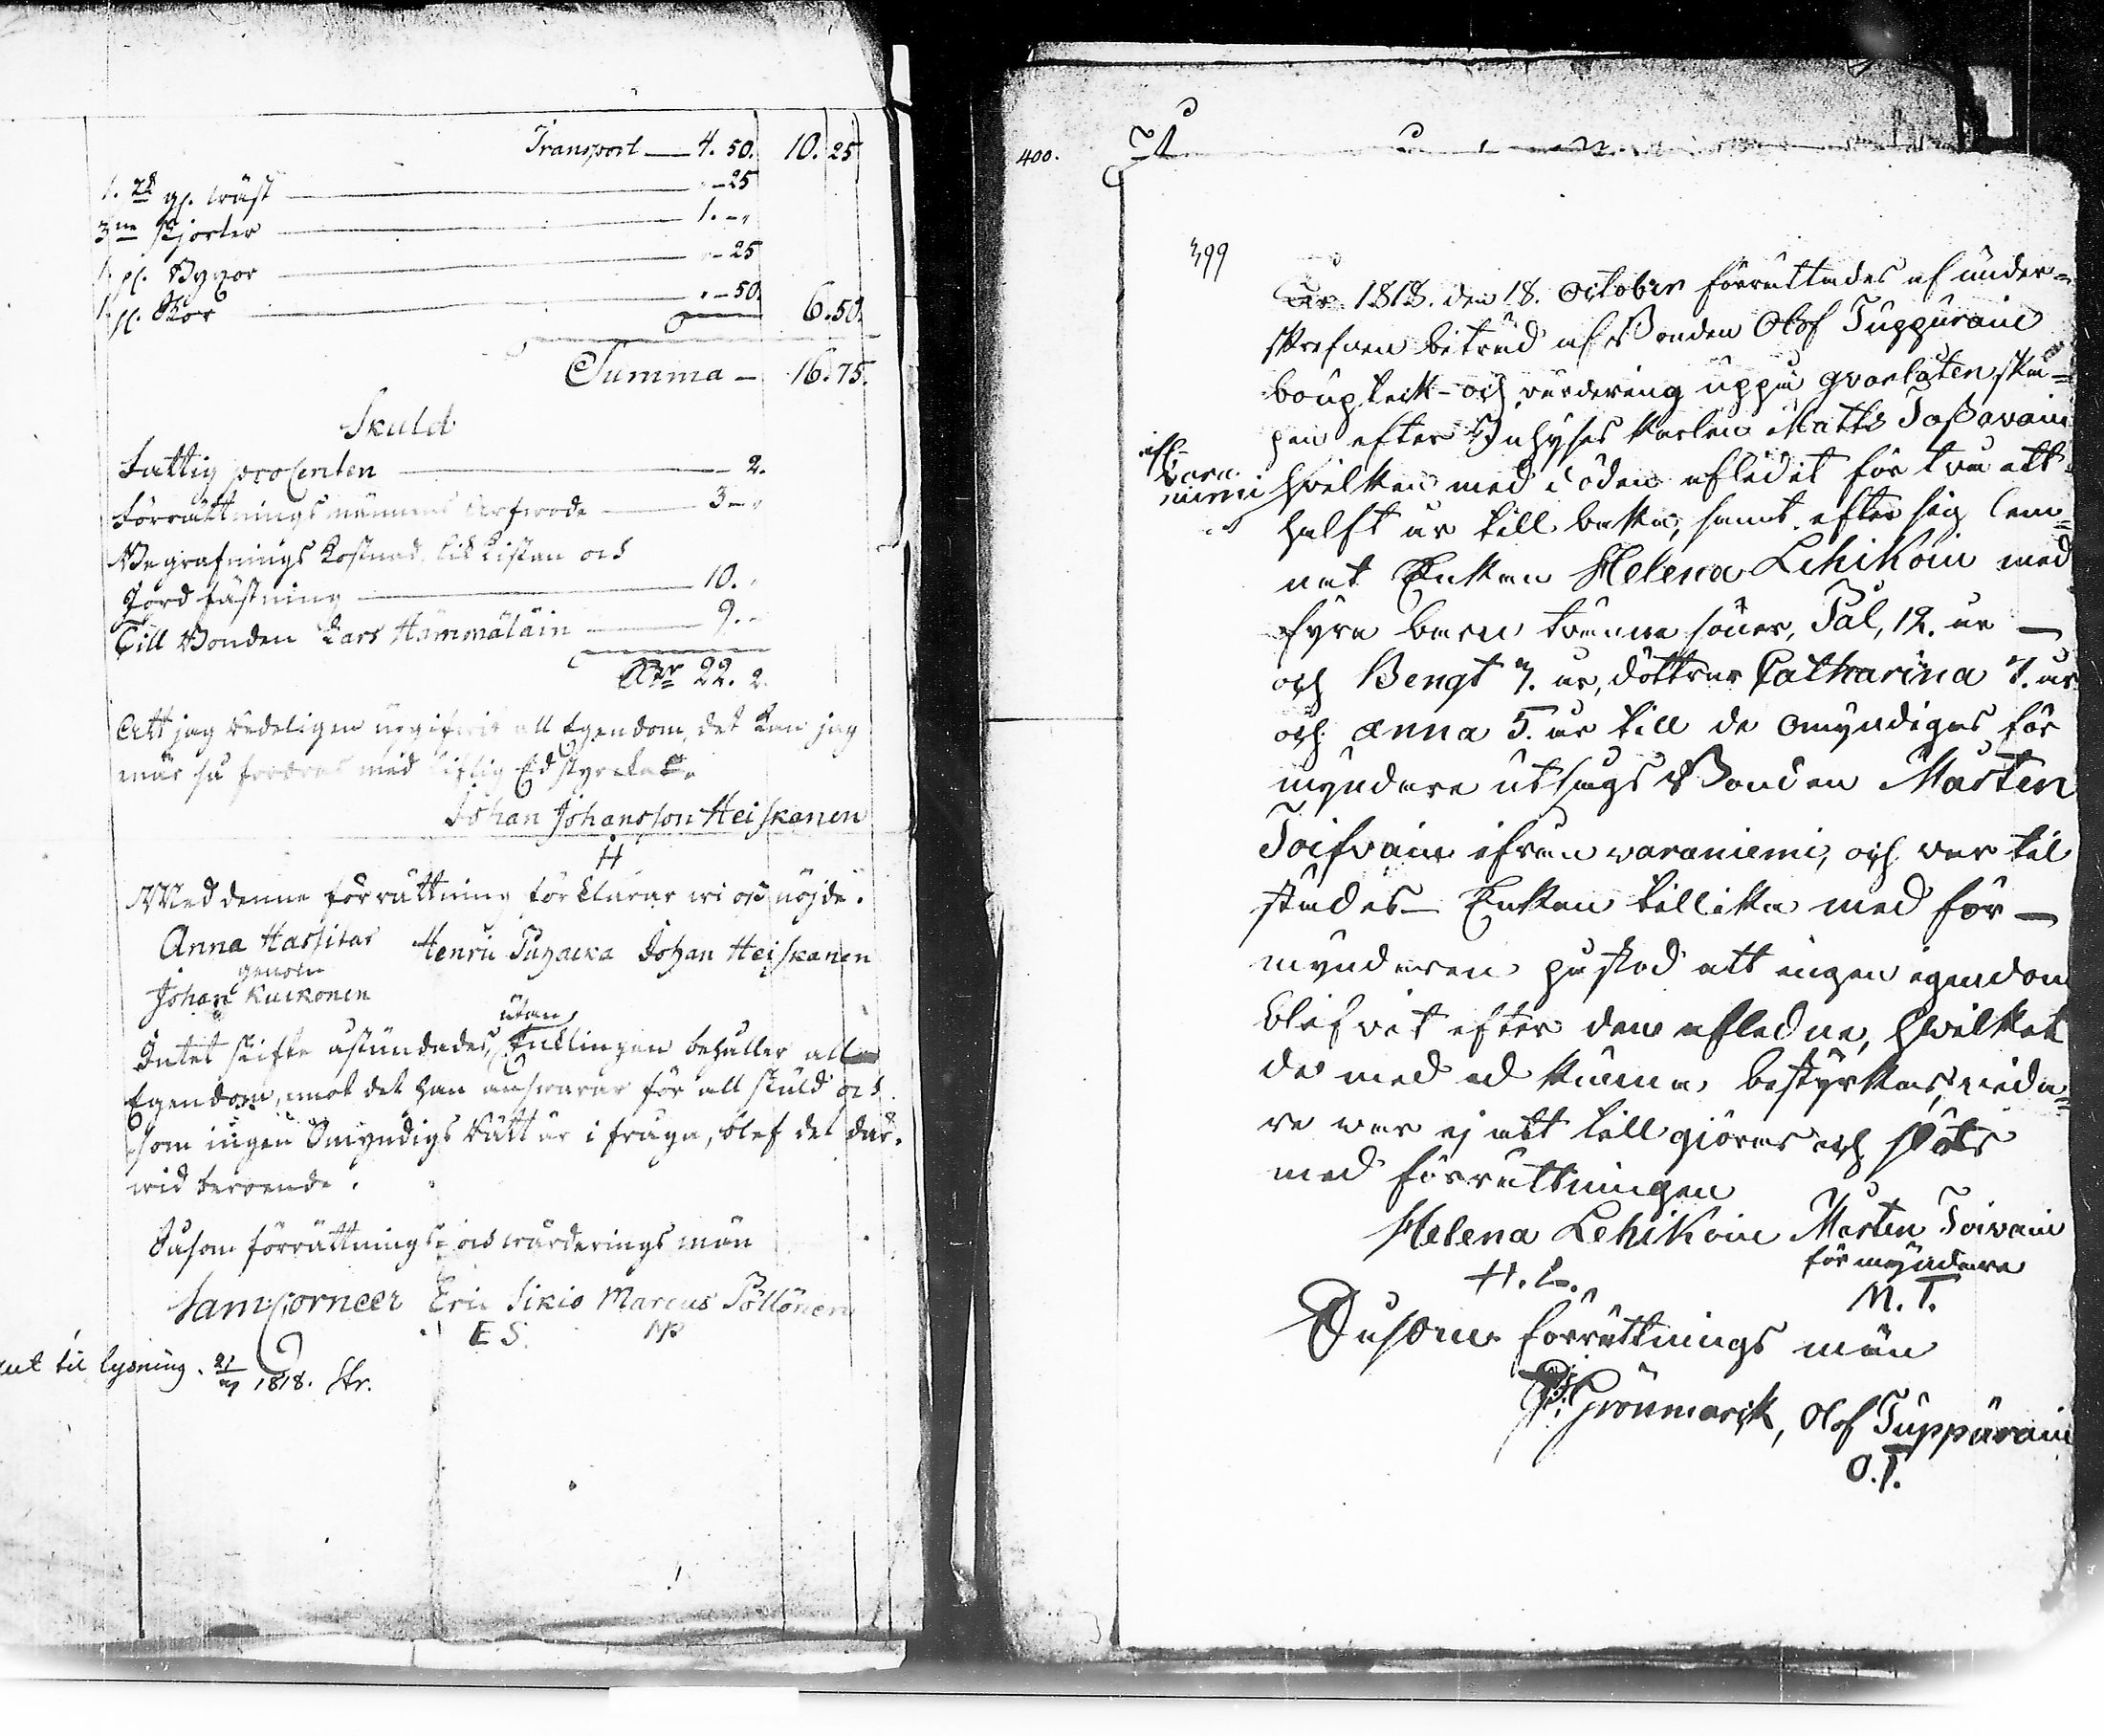 Transport — 4. 50. 10. 25
1. st. gl. wäst — " - 25
3ne Skjortor — 1. - "
1. pl. Byxor — " - 25
1. pl. Skor — " - 50. 6. 50.
Summa — 16. 75.
Skuld
Fattig procenten — 2.
Förrättnings männens Arfwode — 3 - "
Begrafnings kostnad, lik kistan och
Jord fästning — 10. "
Till Bonden Lars Hämmäläin — 9. -
22. 2.
Att jag redeligen uppgifwit all Egendom, det kan jag
när så fordras med liflig Ed styrcka.
Johan Johansson Heiskanen
H
Med denne förrättning förklarar wi oss nöjde.
Anna Hassitar Henric Puhacka Johan Heiskanen
genom
Johan Kuikonen
utan
Intet skifte åstundades, Enklingen behåller all
Egendom, mot det han answarar för all skuld och
som ingen Omyndigs rätt är i fråga, blef det där-
wid beroende.
Såsom förrättnings- och wärderings män
Sam: Corneer Eric Sikio Marcus Pöllönen
E S. MP
til lysning. 21/ 1818. Str.
400.
399
År 1818. den 18. October förrättades af under-
skrefven biträd af Bonden Olof Tuppurain
boupteck- och värdering uppå qvarlåtenska-
pen efter Inhyses karlen Matts Tossavain
Vara-
niemi
hvilken med döden aflidit för två ett
halft år tillbaka, samt efter sig lem-
nat Enkan Helena Lehikoin med
fyra barn tvenne söner, Pål, 12. år —
och Bengt 7. år, döttrar Catharina 7. år
och Anna 5. år till de omyndigas för
myndare utsågs Bonden Mårten
Toifvain ifrån varaniemi, och var til
städes — Enkan tillika med för —
myndaren påstod att ingen egendom
blifvit efter den aflidne, hvilket
de med ed kunna bestyrka, vida-
re var ej att tillgiöras och slöts
med förrättningen
Helena Lehikoin Mårten Toivain
förmyndare
H. L. M. T.
Såsom förrättnings män
Grönmarck, Olof Tuppurain
O. T.